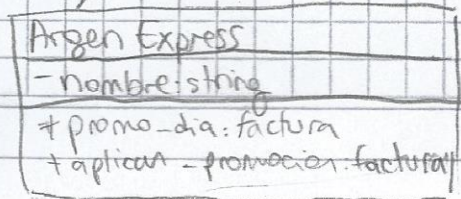 Argen Express
- nombre: string
+ promo-dia: factura
+ aplican - promocion: factura